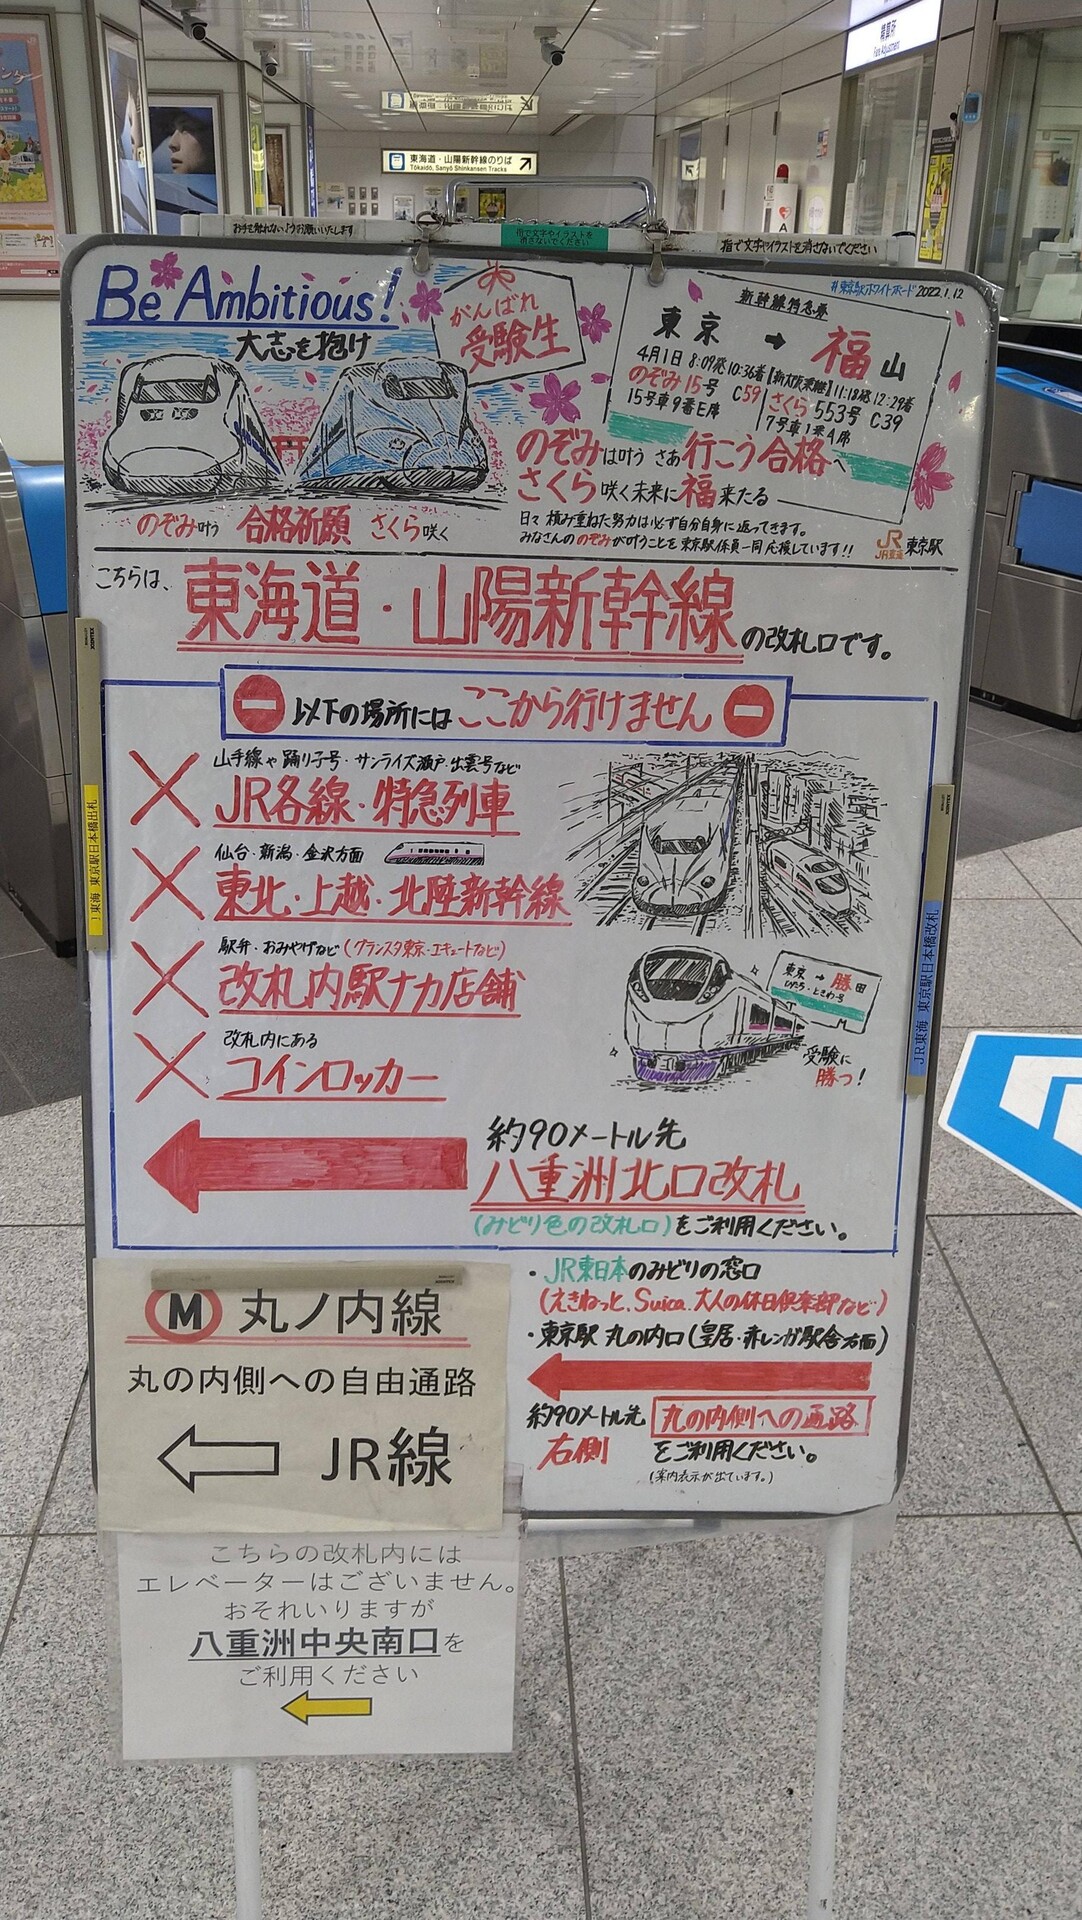 精算所
Fare Adjustment
東海道・山陽新幹線のりば
Tōkaidō, San'yō Shinkansen Tracks
お手を触れないようお願いいたします
指で文字やイラストを
消さないでください
指で文字やイラストを消さないでください
Be Ambitious!
大志を抱け
がんばれ
受験生
#東京駅ホワイトボード 2022.1.12
新幹線特急券
東京 → 福山
4月1日 8:09発 10:36着【新大阪乗継】11:18発 12:29着
のぞみ15号 C59 さくら553号 C39
15号車9番E席 7号車1番A席
のぞみは叶う さあ行こう合格へ
さくら咲く未来に福来たる
のぞみ叶う 合格祈願 さくら咲く
日々積み重ねた努力は必ず自分自身に返ってきます。
みなさんののぞみが叶うことを東京駅係員一同応援しています!!
JR
JR東海 東京駅
こちらは、東海道・山陽新幹線の改札口です。
以下の場所にはここから行けません
山手線や踊り子号・サンライズ瀬戸・出雲号など
JR各線・特急列車
仙台・新潟・金沢方面
東北・上越・北陸新幹線
駅弁・おみやげなど(グランスタ東京・エキュートなど)
改札内駅ナカ店舗
改札内にある
コインロッカー
東京 → 勝田
ひたち・ときわ号
受験に
勝つ!
約90メートル先
八重洲北口改札
(みどり色の改札口)をご利用ください。
・JR東日本のみどりの窓口
(えきねっと、Suica、大人の休日倶楽部など)
・東京駅 丸の内口(皇居・赤レンガ駅舎方面)
約90メートル先 丸の内側への通路
右側 をご利用ください。
(案内表示が出ています。)
M 丸ノ内線
丸の内側への自由通路
JR線
こちらの改札内には
エレベーターはございません。
おそれいりますが
八重洲中央南口を
ご利用ください
東海 東京駅日本橋出札
JR東海 東京駅日本橋改札